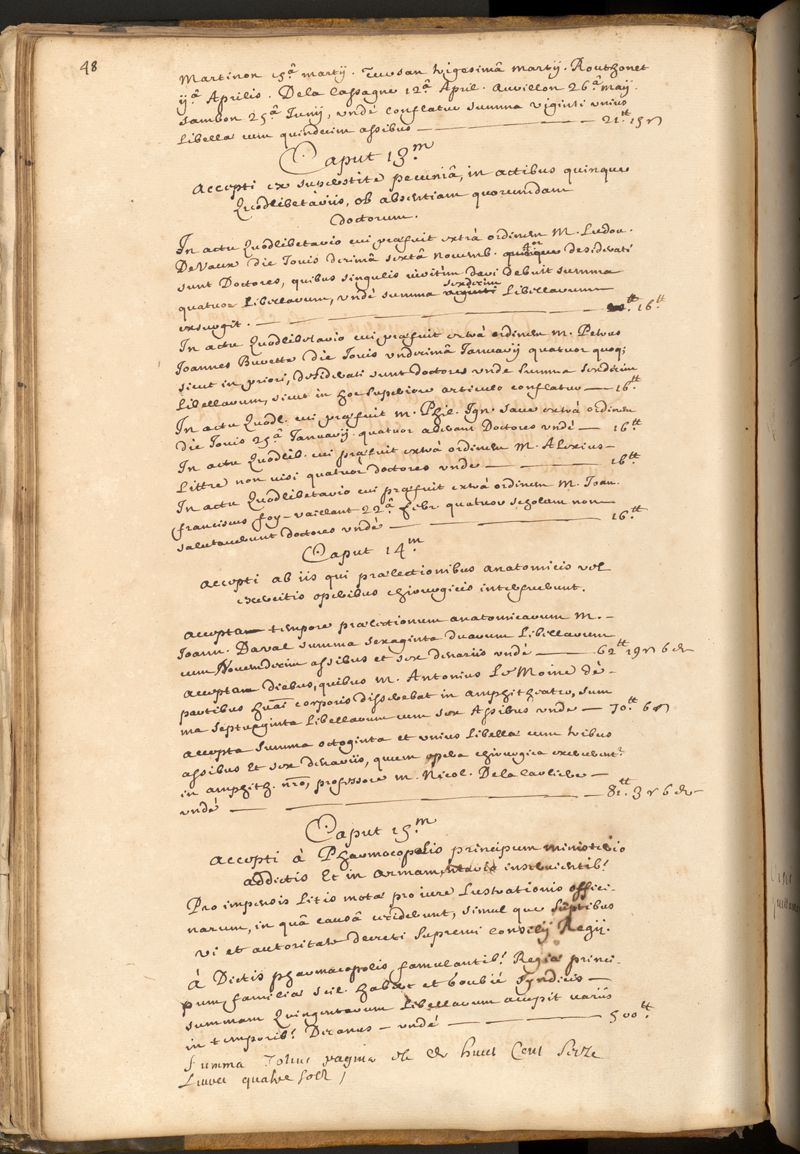 48
Martinon 15ª martij. Cuvsan vigesimâ martij. Routhonet
ijª Aprilis. De la Cassagne 12ª April. Auvillon 26ª maij.
Sambon 25ª Junij, undè conflatur summa viginti unius
Libellæ cum quindecim assibus — 21tt 15 s
Caput 13m
Accepti ex superstite pecuniâ, in actibus quinque
Quodlibetariis, ob absentiam quorumdam
Doctorum.
In actu Quodlibetario cui præfuit extrà ordinem M. Ludov.
De Vaux die Jovis decimâ sextâ novemb. quatuor desiderati
sunt Doctores, quibus singulis viritim dari debuit summa
quatuor Libellarum, undè summa sexdecim Libellarum
exsurgit. — 16tt
In actu Quodlibetario cui præfuit extrà ordinem M. Petrus
Joannes Burette die Jovis undecimâ Januarij quatuor quoq;
sicut in priori, desiderati sunt doctores unde summa sexdecim
Libellarum, sicut in hoc superiore articulo conflatur — 16tt
In actu Quodl. cui præfuit M. Phil. Ign. Save extrà ordinem
die Jovis 25ª Januarij. quatuor aberant Doctores undè — 16tt
In actu Quodlib. cui præfuit extrà ordinem M. Alexius —
Littre non nisi quatuor doctores unde — 16tt
In actu Quodlibetario cui præfuit extrà ordinem M. Joan.
franciscus foy-vaillant 22ª febr quatuor scholam non
salutaverunt doctores undè — 16tt
Caput 14m
Accepti ab iis qui prælectionibus anatomicis vel
exercitio operibus chirurgicis interfuerunt.
Accepta tempore prælectionum anatomicarum M. —
Joann. Daval summa sexaginta duarum Libellarum
cum Novemdecim assibus et sex denariis undè — 62tt 19 s 6 d
Accepta diebus, quibus M. Antonius Le Moine de
partibus humani corporis disserebat in amphitheatro, sum
ma septuaginta Libellarum cum sex Assibus unde — 70tt 6 s
Accepta summa octoginta et unius Libellæ cum tribus
assibus et sex denariis, quum opera chirurgica exercebant.
in amphith. nro, professore M. Nicol. De la Carliere —
undè — 81tt 3 s 6 d
Caput 15m
Accepti à Pharmacopolis principum ministerio
addictis Et in armamentario inservientib.
Pro impensis Litis mota pro iure Lustrationis offici-
narum, in quâ causâ ceciderunt, simul que sumptibus
vi et autoritate decreti supremi Consilij Regij.
à Dictis pharmacopolis famulantib. Regiæ princi-
pum familiæ scil. habert et boubié syndicis —
summam Quingentarum Libellarum accepit variis
in temporib. Decanus — undè — 500tt
Summa Totius pagina est de huict Cent Seize
Livres quatre sols